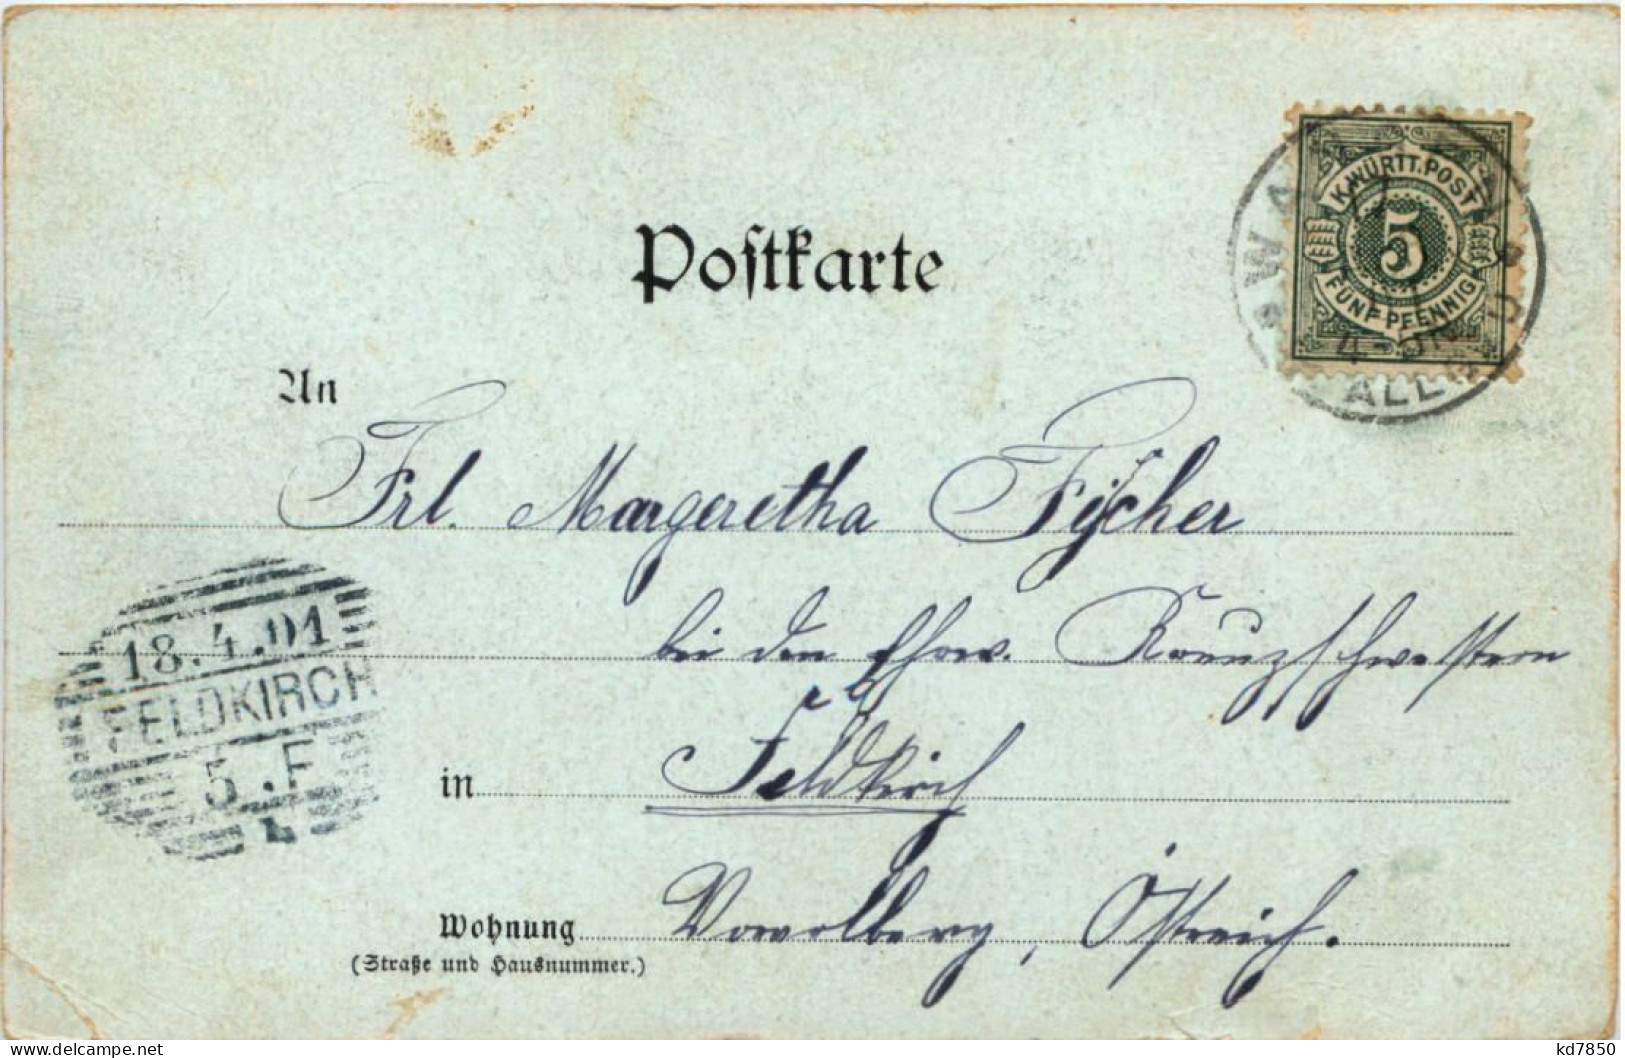 Postkarte
K.WÜRTT.POST
5
FÜNF PFENNIG
WA
ALLG
An
Frl. Margeretha Fischer
bei den Ehrw. Kreuzschwestern
18.4.01
FELDKIRCH
5.F
in Feldkirch
Wohnung Vorarlberg, Östreich.
(Straße und Hausnummer.)
delcampe.net
kd7850